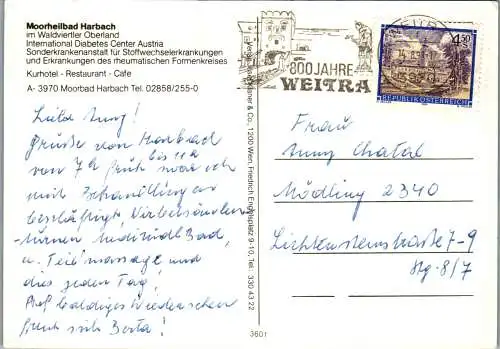 Moorheilbad Harbach
im Waldviertler Oberland
International Diabetes Center Austria
Sonderkrankenanstalt für Stoffwechselerkrankungen
und Erkrankungen des rheumatischen Formenkreises
Kurhotel - Restaurant - Cafe
A- 3970 Moorbad Harbach Tel. 02858/255-0
Grüße von Harbach
von 7h früh bis 11h
mit Behandlungen
beschäftigt, Wirbelsäulen
turnen, Medizinal Bad,
u. Teilmassage und
dies jeden Tag,
baldiges Wiedersehen
freut sich Berta!
800 JAHRE
WEITRA
4.50
REPUBLIK ÖSTERREICH
& Co., 1200 Wien, Friedrich Engelsplatz 9-10, Tel. 330 43 22
3601
Frau
Chatal
Mödling 2340
Lichtensteinstraße 7-9
Stg. 8/7